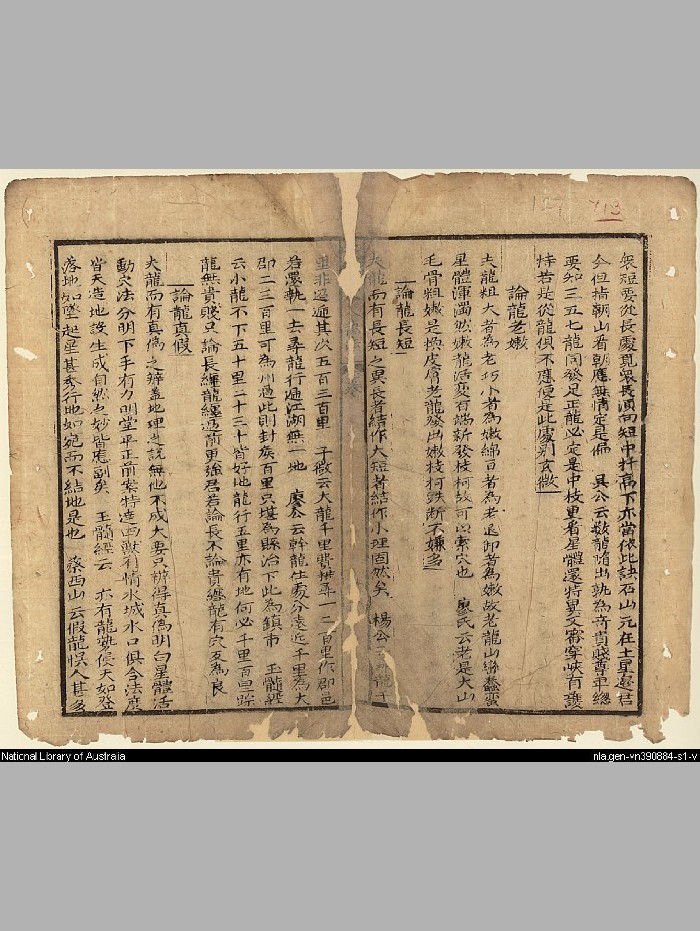 衮短要從長處覓衮長須向短中扦高下亦當依此訣石山元在土星邊君
今但指朝山看朝應無情定是偏 吳公云數龍陷出孰為奇貴賤尊卑總
要知三五七龍同發足正龍必定是中枝更看星體還特異又審穿峽有護
持若是從龍俱不應便是此處別玄微
論龍老嫩
夫龍粗大者為老巧小者為嫩綿亘者為老退卸者為嫩故老龍山巒蠢蠻
星體渾濁然嫩龍活变百端新發枝柯故可以索穴也 廖氏云老是大山
毛骨粗嫩是換皮膚老龍發出嫩枝柯跌断不嫌多
論龍長短
夫龍而有長短之異長者結作大短者結作小理固然矣 楊公云 龍千
里非 通其次五百三百里 子微云大龍千里費推尋一二百里作郡邑
若還執一去尋龍行遍江湖無一地 廖公云幹龍住處分遠近千里為大
郡二三百里可為州過此則封侯百里只堪為縣治下此為鎮市 玉髓經
云小龍不下五十里二十三十皆好地龍行五里亦有地何必千里百里踪
龍無貴賤只論長纏龍纏過前更強君若論長不論貴纏龍有穴反為良
論龍真假
夫龍而有真偽之辨蓋地理之說無他不成大要只辨得真偽明白星體活
動穴法分明下手有力明堂平正前案特達四獸有情水城水口俱合法度
皆天造地設生成自然之妙皆應副矣 玉髓經云 亦有龍勢侵天如登
落地如墜起星甚秀行地如蜿而不結地是也 蔡西山云假龍悞人甚多
National Library of Australia
nla.gen-vn390884-s1-v